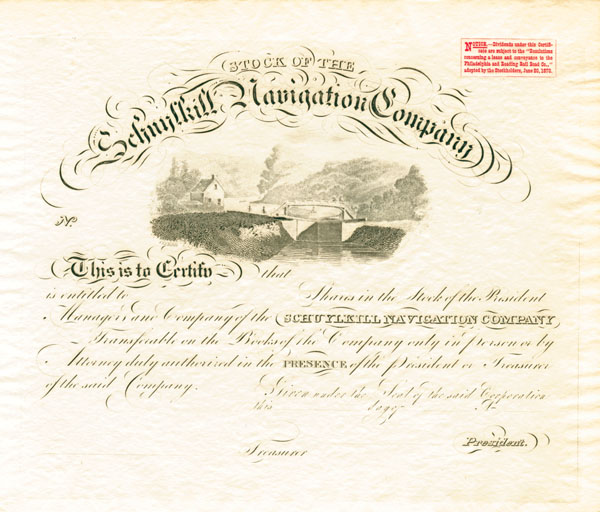 NOTICE.—Dividends under this Certifi-
cate are subject to the "Resolutions
concerning a lease and conveyance to the
Philadelphia and Reading Rail Road Co.,"
adopted by the Stockholders, June 20, 1870.
STOCK OF THE
Schuylkill Navigation Company
No.
This is to Certify that
is entitled to Shares in the Stock of the President
Managers and Company of the SCHUYLKILL NAVIGATION COMPANY
Transferable on the Books of the Company only in person or by
Attorney duly authorized in the PRESENCE of the President or Treasurer
of the said Company. Given under the Seal of the said Corporation
this day of
President.
Treasurer